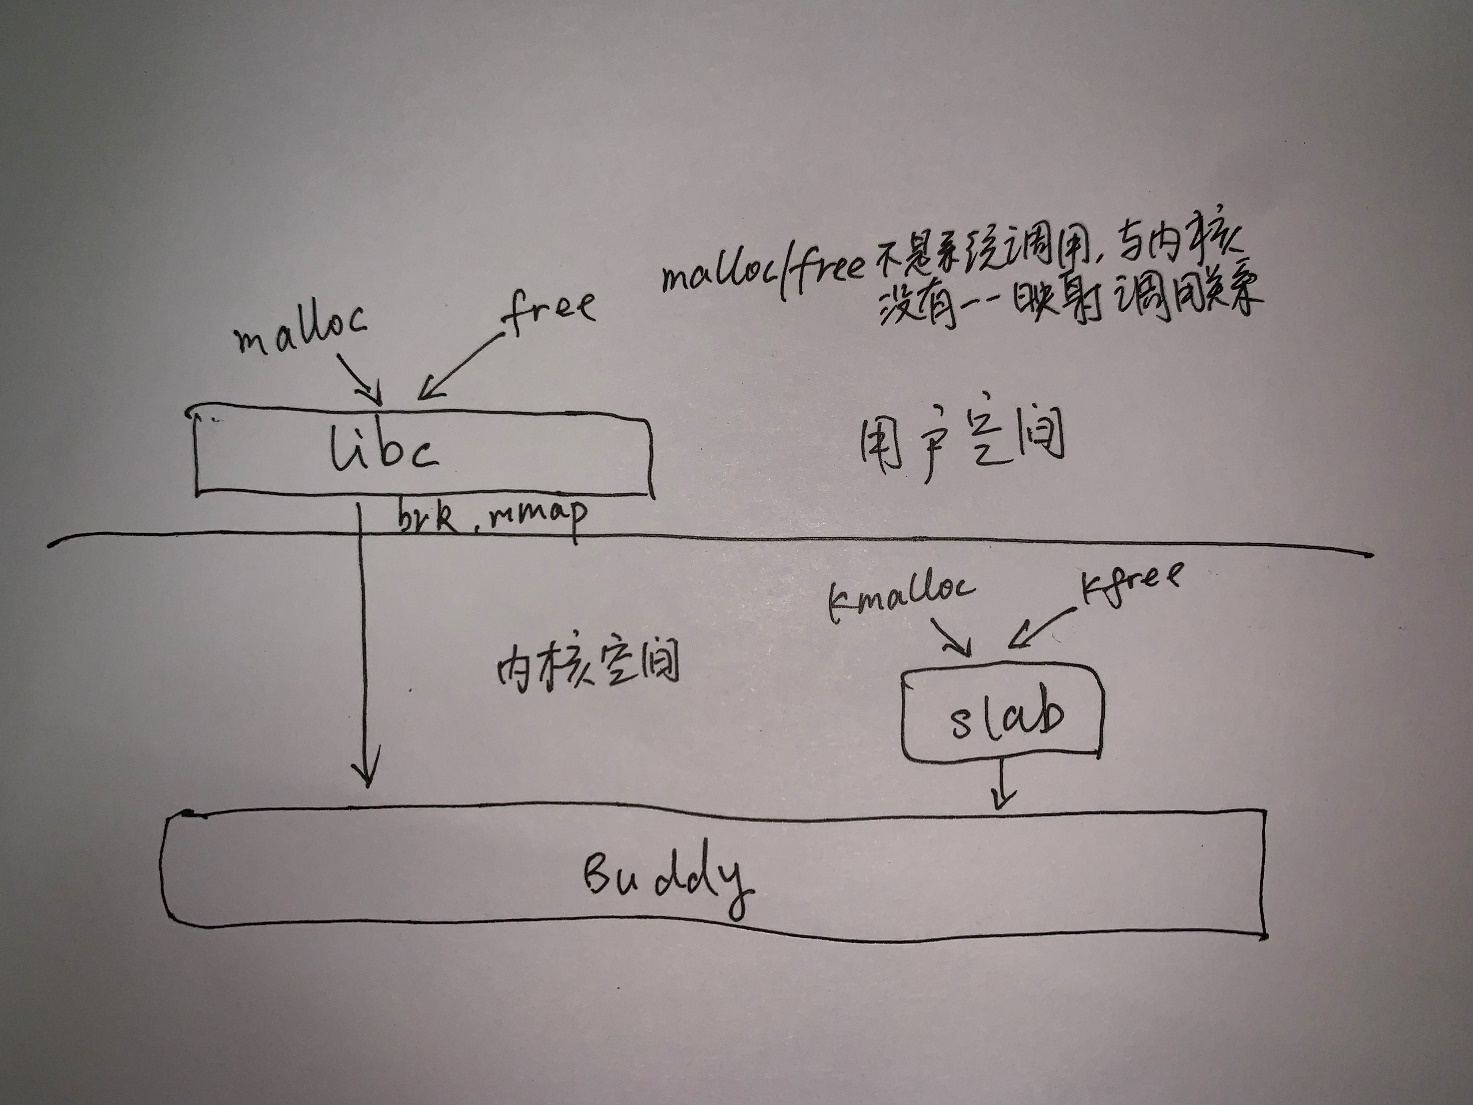 malloc/free 不是系统调用,与内核
没有一一映射调用关系
malloc
free
libc
用户空间
brk,mmap
kmalloc
kfree
内核空间
slab
Buddy